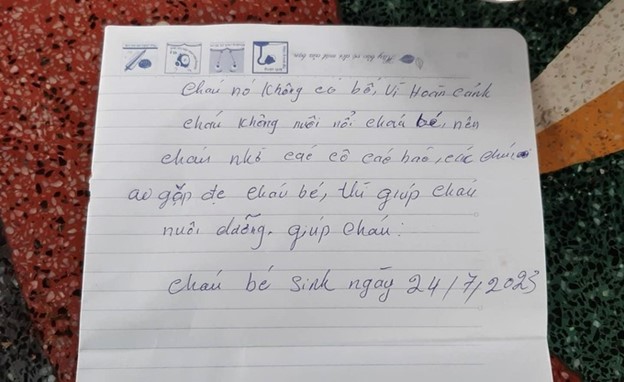 cháu nó không có bố, vì Hoàn cảnh
cháu không nuôi nổi cháu bé, nên
cháu nhờ các cô các bác, các chú
ai gặp đc cháu bé, thì giúp cháu
nuôi dưỡng, giúp cháu:
cháu bé sinh ngày 24/7/2023